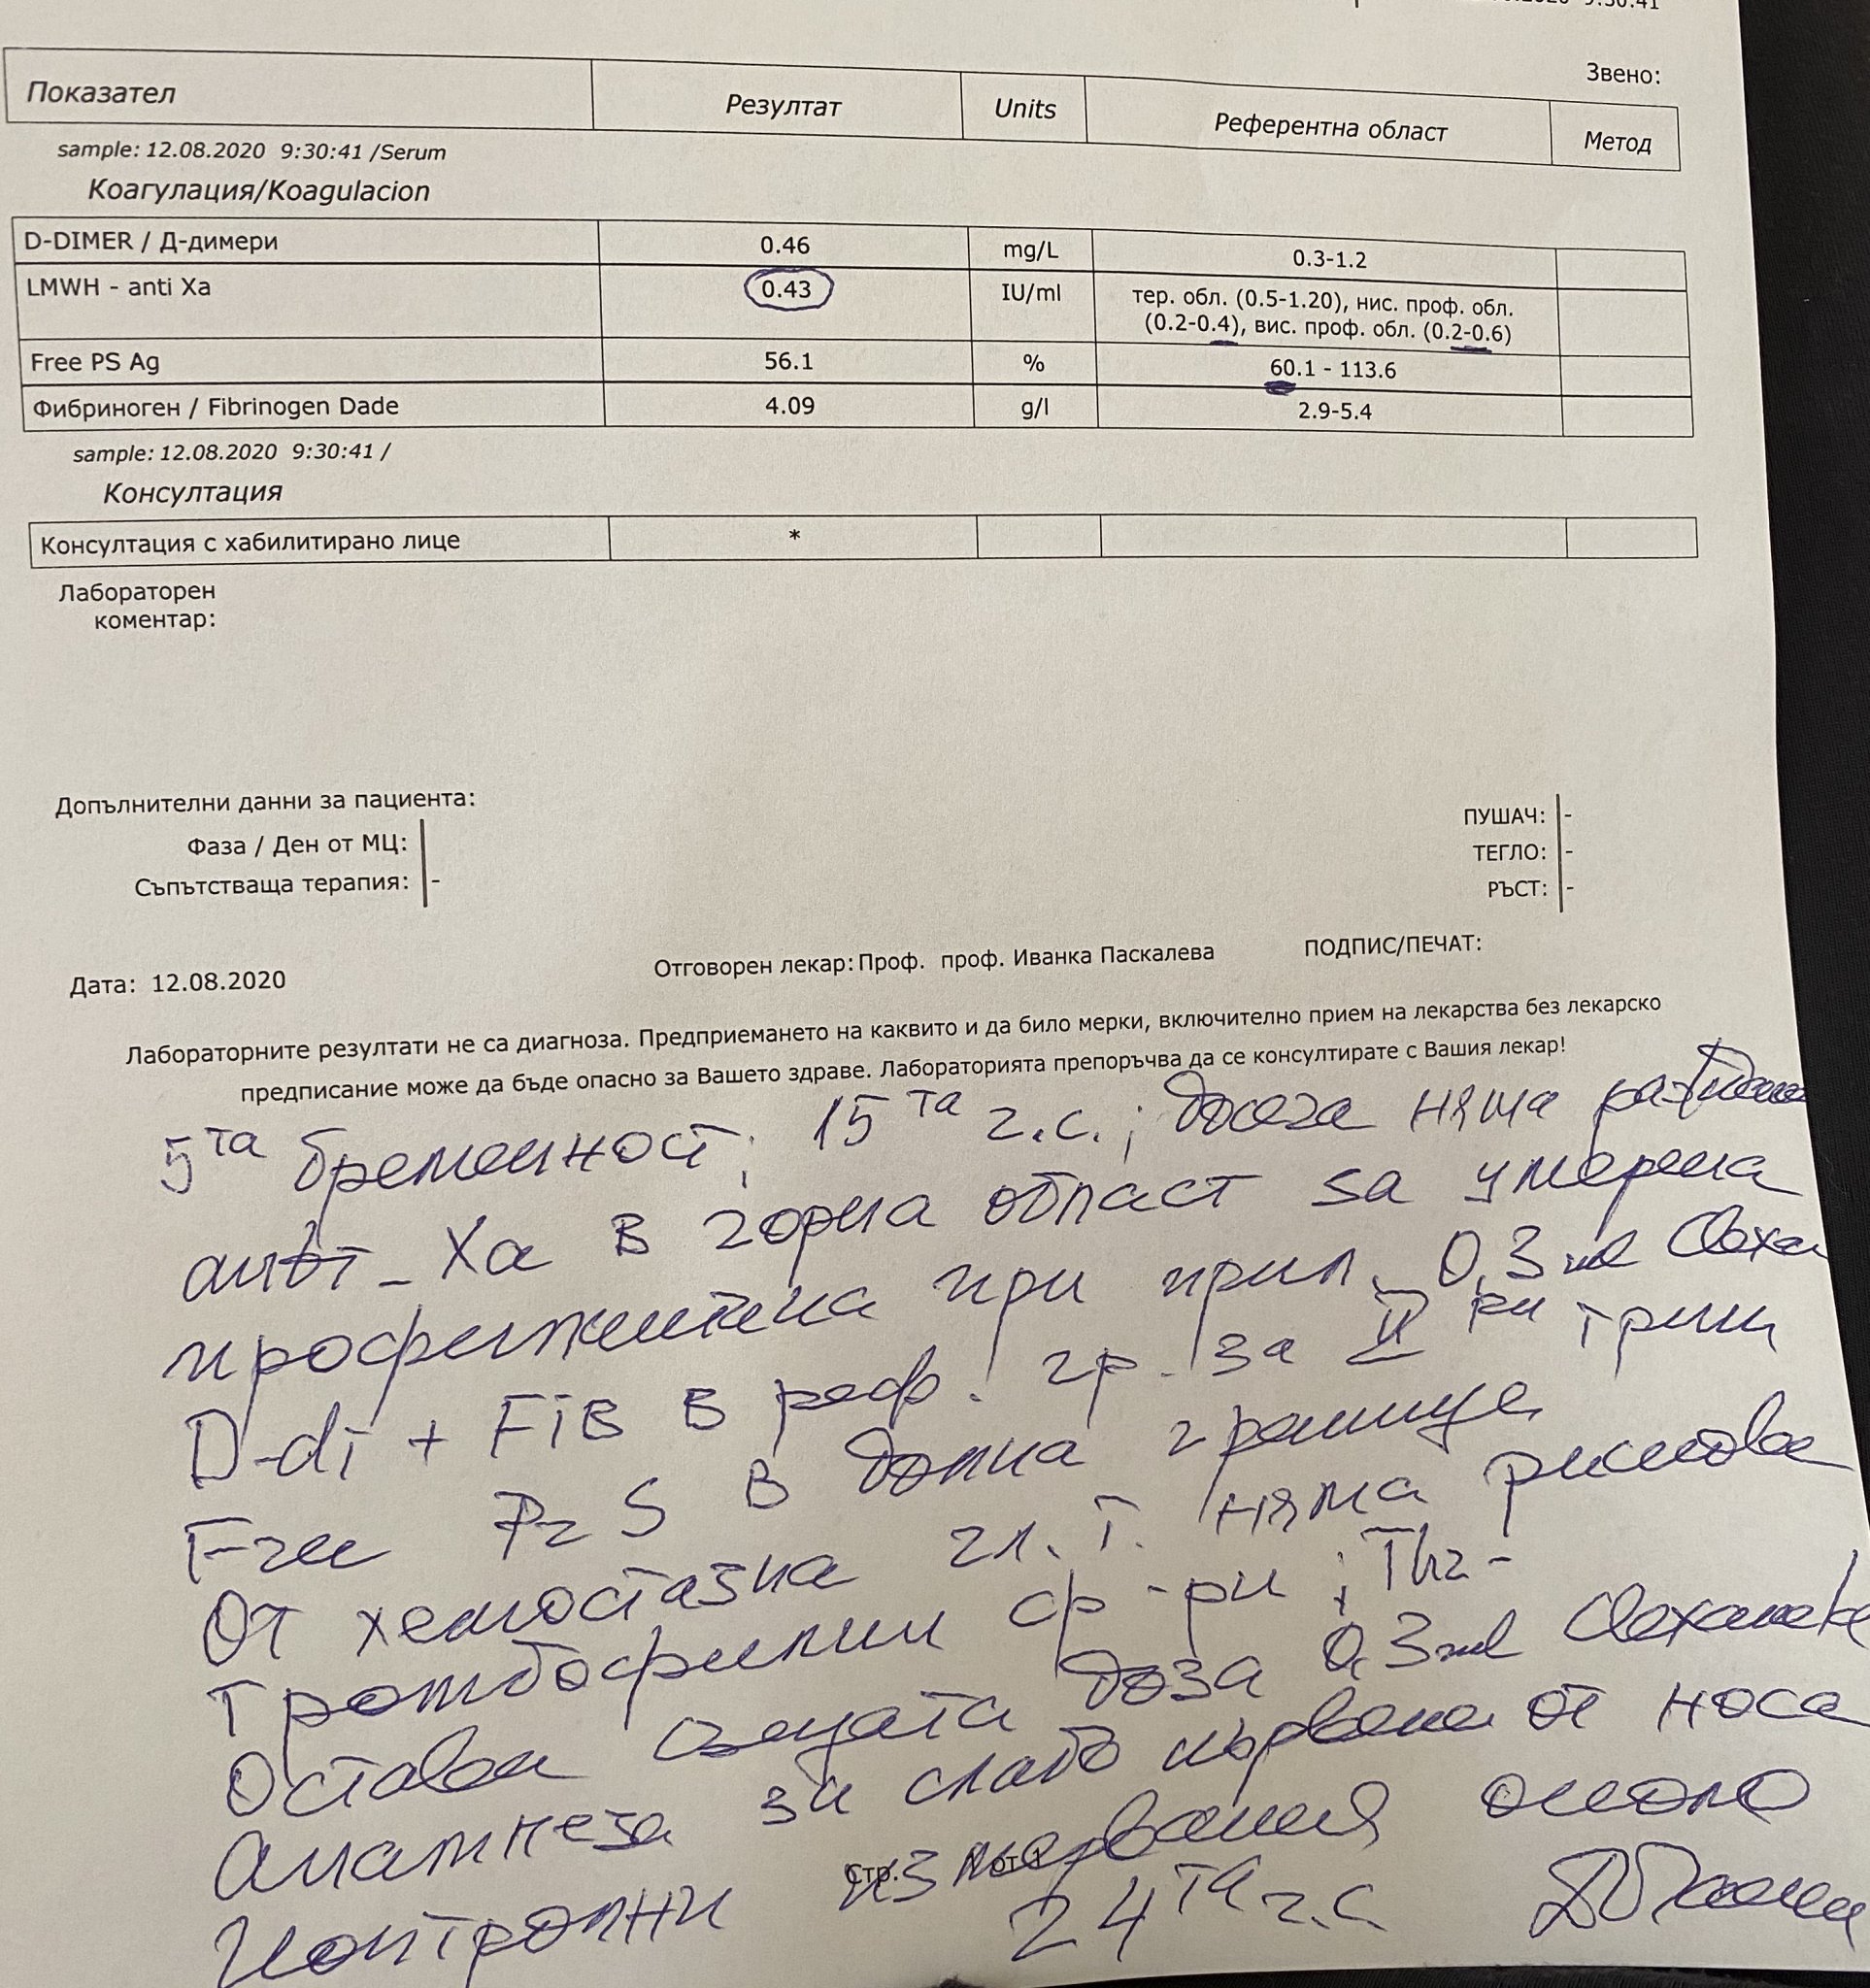 9:30:41
Звено:
Показател Резултат Units Референтна област Метод
sample: 12.08.2020 9:30:41 /Serum
Коагулация/Koagulacion
D-DIMER / Д-димери 0.46 mg/L 0.3-1.2
LMWH - anti Xa 0.43 IU/ml тер. обл. (0.5-1.20), нис. проф. обл.
(0.2-0.4), вис. проф. обл. (0.2-0.6)
Free PS Ag 56.1 % 60.1 - 113.6
Фибриноген / Fibrinogen Dade 4.09 g/l 2.9-5.4
sample: 12.08.2020 9:30:41 /
Консултация
Консултация с хабилитирано лице *
Лабораторен
коментар:
Допълнителни данни за пациента:
Фаза / Ден от МЦ:
Съпътстваща терапия: -
ПУШАЧ: -
ТЕГЛО: -
РЪСТ: -
Дата: 12.08.2020 Отговорен лекар: Проф. проф. Иванка Паскалева ПОДПИС/ПЕЧАТ:
Лабораторните резултати не са диагноза. Предприемането на каквито и да било мерки, включително прием на лекарства без лекарско
предписание може да бъде опасно за Вашето здраве. Лабораторията препоръчва да се консултирате с Вашия лекар!
5та бременност; 15та г.с.; досега няма
анти-Xa в горна област за умерена
профилактика при прил. 0,3 мл Clexa
D-di + FiB в реф. гр. за II ри трим
Free Pr S в долна граница
От хемостазна гл. т. няма рискова
тромбофилии ф-ри; Thr-
Оставам същата доза 0,3 мл Clexane
Анамнеза за слабо кървене от носа
Контролни измервания около
Стр. 1 от 1
24та г.с.